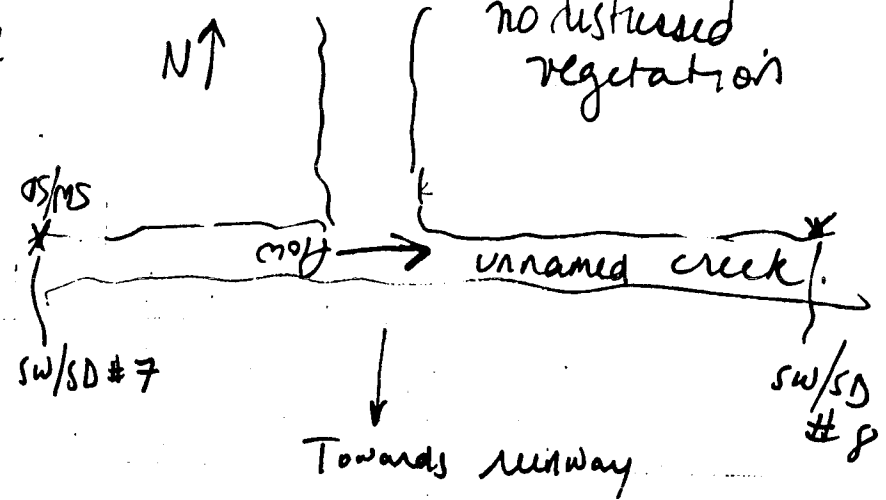 N↑
no distressed
vegetation
flow → unnamed creek.
SW/SD #7
SW/SD
# 8
Towards runway